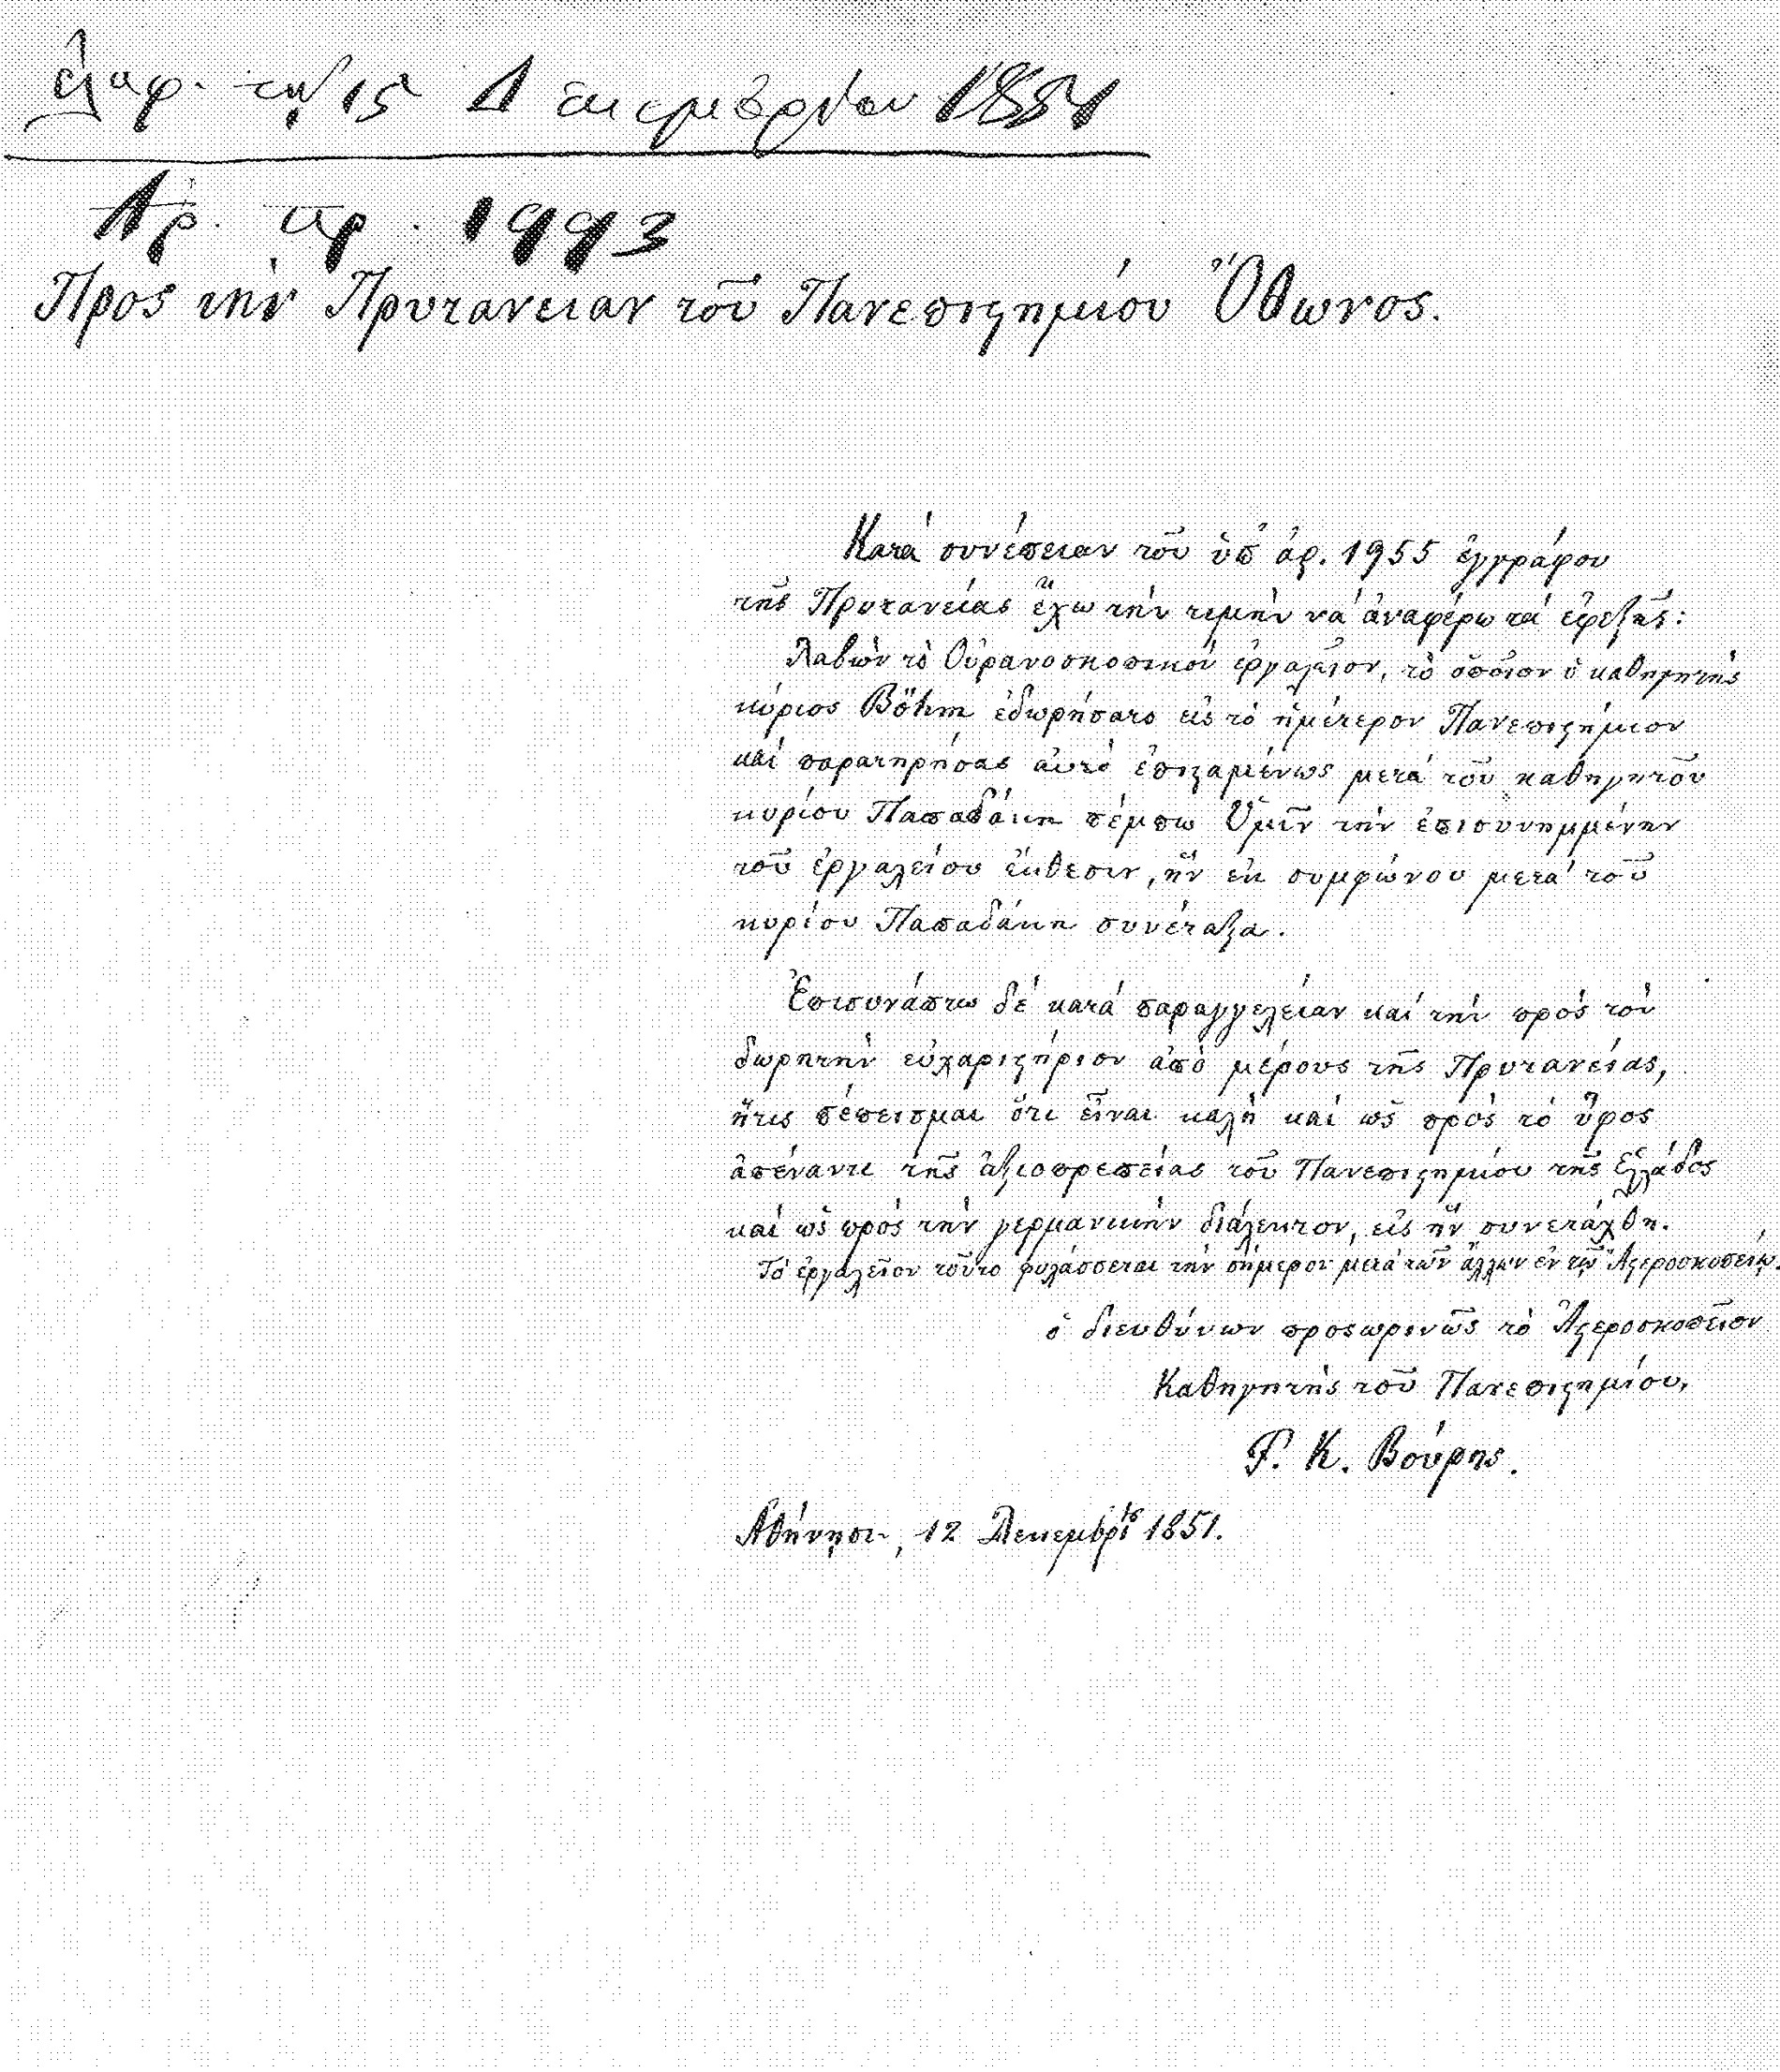 ἐλήφ. τῇ 15 Δεκεμβρίου 1851
Ἀρ. πρ. 1993
Πρὸς τὴν Πρυτανείαν τοῦ Πανεπιϛημίου Ὄθωνος.
Κατὰ συνέπειαν τοῦ ὑπ' ἀρ. 1955 ἐγγράφου
τῆς Πρυτανείας ἔχω τὴν τιμὴν νὰ ἀναφέρω τὰ ἐφεξῆς:
Λαβὼν τὸ Οὐρανοσκοπικὸν ἐργαλεῖον, τὸ ὁποῖον ὁ καθηγητὴς
κύριος Böhm ἐδωρήσατο εἰς τὸ ἡμέτερον Πανεπιϛήμιον
καὶ παρατηρήσας αὐτὸ ἐπιϛαμένως μετὰ τοῦ καθηγητοῦ
κυρίου Παπαδάκη πέμπω Ὑμῖν τὴν ἐπισυνημμένην
τοῦ ἐργαλείου ἔκθεσιν, ἣν ἐκ συμφώνου μετὰ τοῦ
κυρίου Παπαδάκη συνέταξα.
Ἐπισυνάπτω δὲ κατὰ παραγγελείαν καὶ τὴν πρὸς τὸν
δωρητὴν εὐχαριϛήριον ἀπὸ μέρους τῆς Πρυτανείας,
ἥτις πέπεισμαι ὅτι εἶναι καλὴ καὶ ὡς πρὸς τὸ ὕφος
ἀπέναντι τῆς ἀξιοπρεπείας τοῦ Πανεπιϛημίου τῆς Ἑλλάδος
καὶ ὡς πρὸς τὴν γερμανικὴν διάλεκτον, εἰς ἣν συνετάχθη.
Τὸ ἐργαλεῖον τοῦτο φυλάσσεται τὴν σήμερον μετὰ τῶν ἄλλων ἐν τῷ Ἀϛεροσκοπείῳ.
ὁ διευθύνων προσωρινῶς τὸ Ἀϛεροσκοπεῖον
Καθηγητὴς τοῦ Πανεπιϛημίου,
Γ. Κ. Βούρης.
Ἀθήνησι, 12 Δεκεμβρίς 1851.